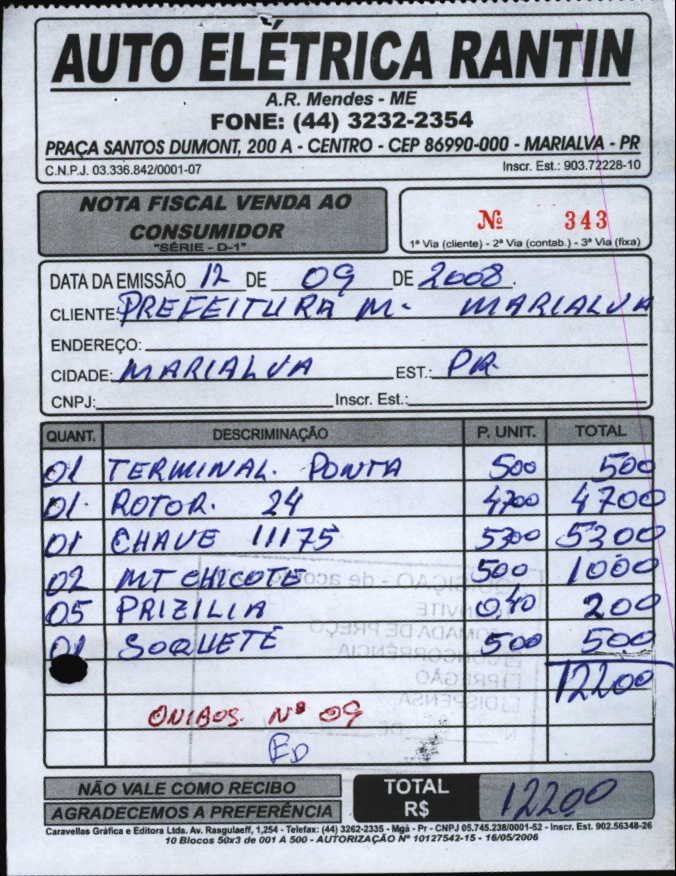 AUTO ELÉTRICA RANTIN
A.R. Mendes - ME
FONE: (44) 3232-2354
PRAÇA SANTOS DUMONT, 200 A - CENTRO - CEP 86990-000 - MARIALVA - PR
C.N.P.J. 03.336.842/0001-07 Inscr. Est.: 903.72228-10
NOTA FISCAL VENDA AO
CONSUMIDOR
"SÉRIE - D-1"
Nº 343
1ª Via (cliente) - 2ª Via (contab.) - 3ª Via (fixa)
DATA DA EMISSÃO 12 DE 09 DE 2008.
CLIENTE: PREFEITURA M. MARIALVA
ENDEREÇO:
CIDADE: MARIALVA EST.: PR.
CNPJ: Inscr. Est.:
QUANT. DESCRIMINAÇÃO P. UNIT. TOTAL
01 TERMINAL. PONTA 500 500
01. ROTOR. 24 4700 4700
01 CHAVE 11175 5300 5300
02 MT CHICOTE 500 1000
05 PRIZILIA 0,40 200
01 SOQUETE 500 500
12200
ONIBOS. Nº 09
ED
NÃO VALE COMO RECIBO
AGRADECEMOS A PREFERÊNCIA
TOTAL
R$ 12200
Caravellas Gráfica e Editora Ltda. Av. Rasgulaeff, 1,254 - Telefax: (44) 3262-2335 - Mgá - Pr - CNPJ 05.745.238/0001-52 - Inscr. Est. 902.56348-26
10 Blocos 50x3 de 001 A 500 - AUTORIZAÇÃO Nº 10127542-15 - 16/05/2006